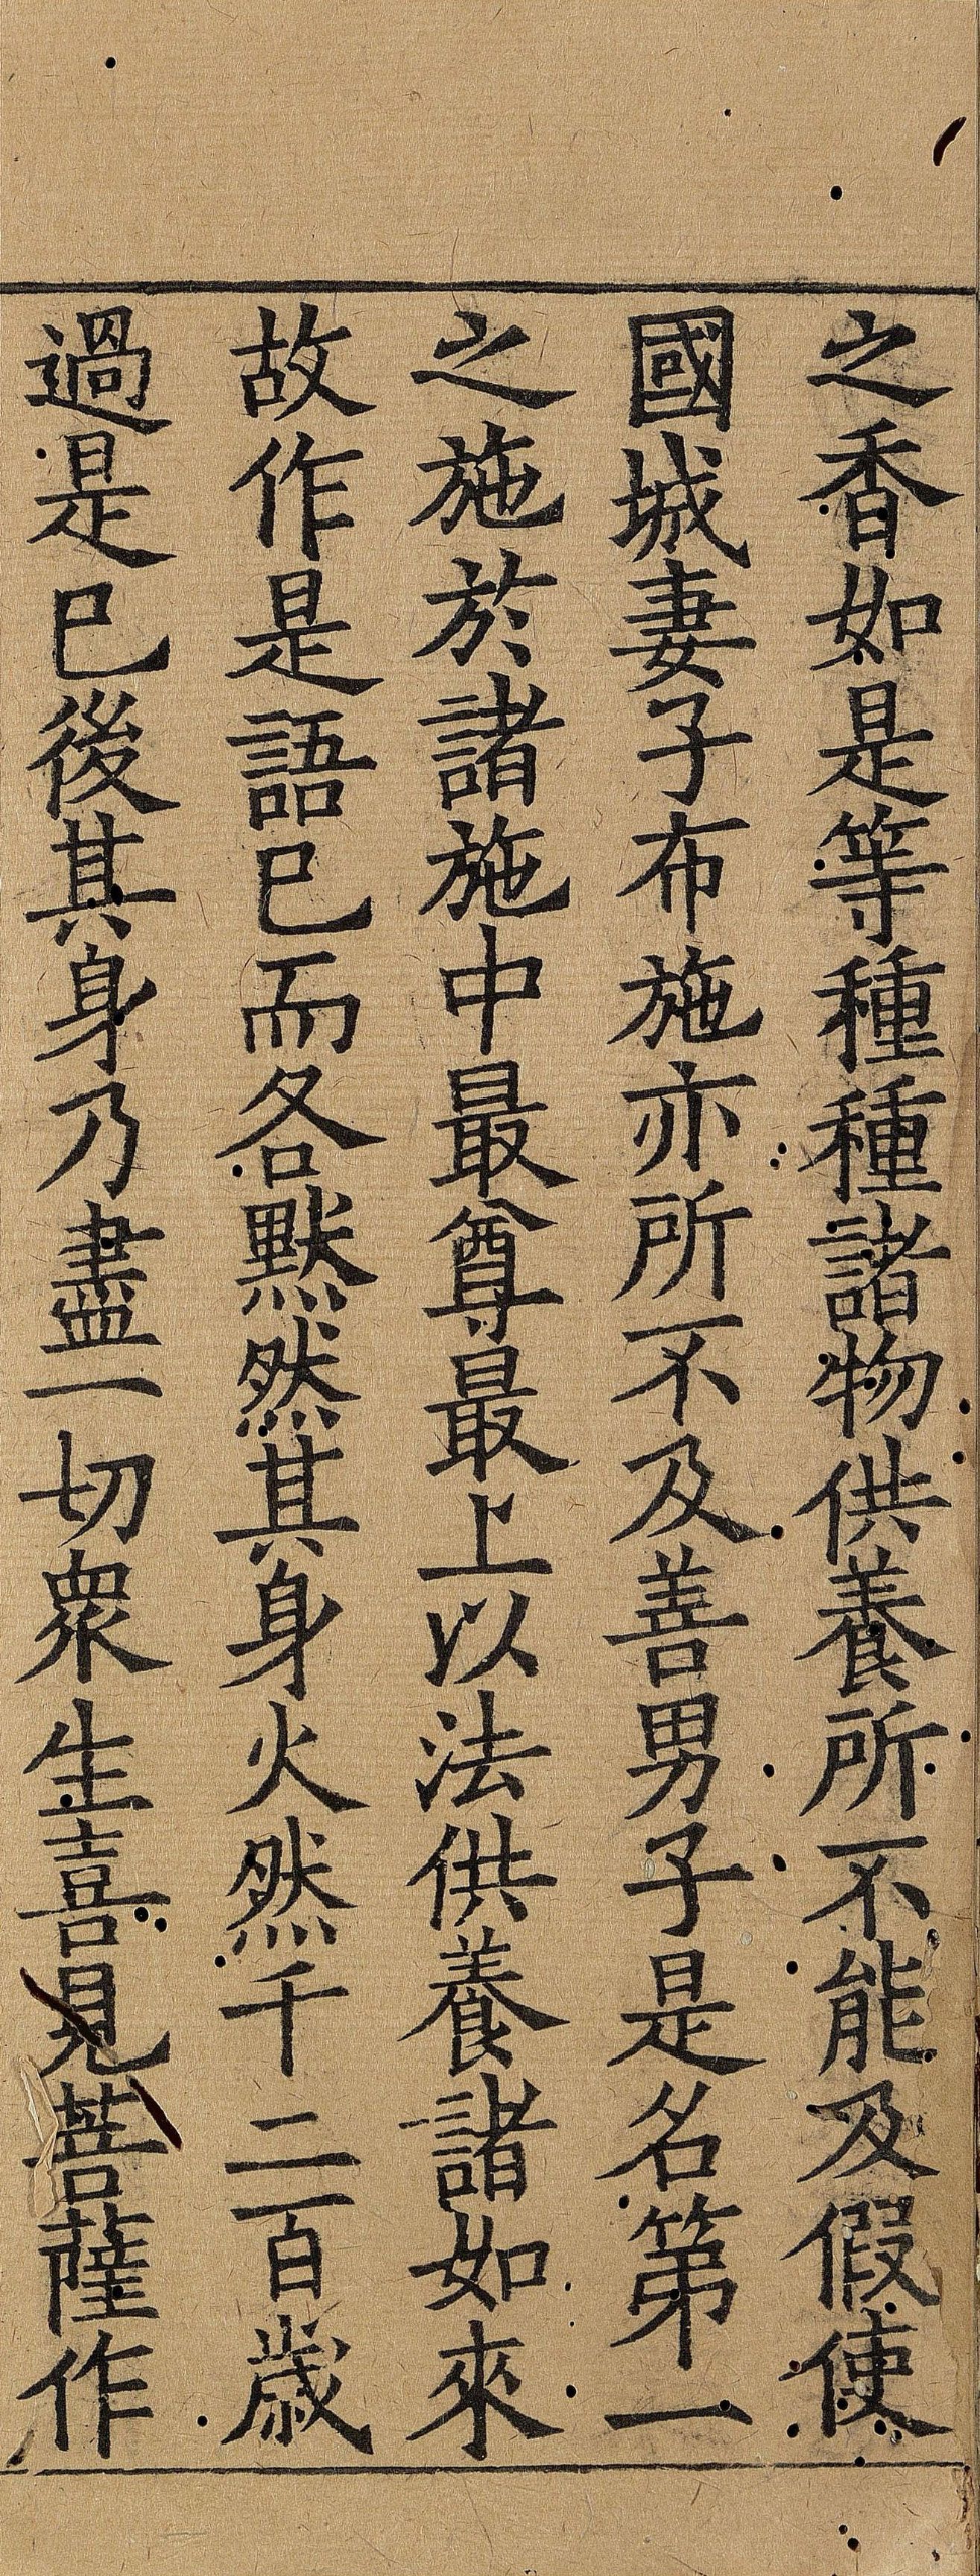 之香如是等種種諸物供養所不能及假使
國城妻子布施亦所不及善男子是名第一
之施於諸施中最尊最上以法供養諸如來
故作是語已而各默然其身火然千二百歲
過是已後其身乃盡一切衆生喜見菩薩作